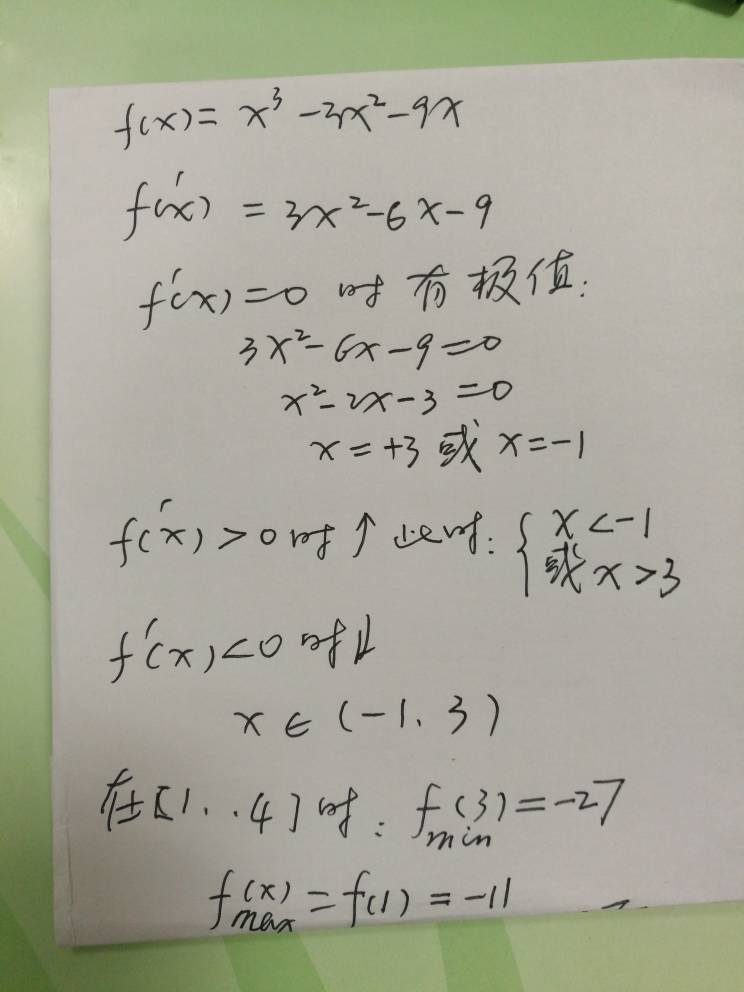 f(x) = x³ - 3x² - 9x
f'(x) = 3x² - 6x - 9
f'(x) = 0 时有极值:
3x² - 6x - 9 = 0
x² - 2x - 3 = 0
x = +3 或 x = -1
f'(x) > 0 时 ↑ 此时: { x < -1
或 x > 3
f'(x) < 0 时 ↓
x ∈ (-1, 3)
在[1, 4]时: f(3)min = -27
f(x)max = f(1) = -11